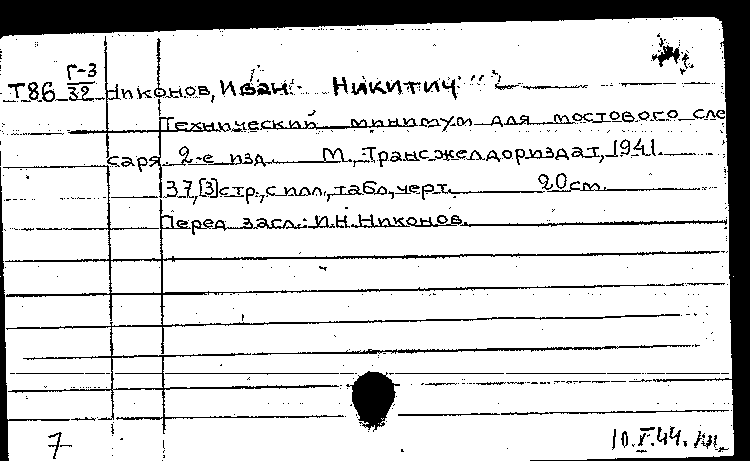 Т86 Г-3/32 Никонов, Иван Никитич
Технический минимум для мостового сле
саря. 2-е изд. М., Трансжелдориздат, 1941.
37,[3]стр., с илл., табл., черт. 20см.
Перед загл.: И.Н. Никонов.
7
10.V.44.